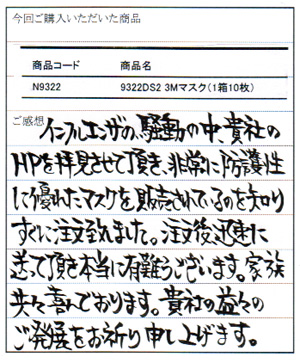 今回ご購入いただいた商品
商品コード 商品名
N9322 9322DS2 3Mマスク(1箱10枚)
ご感想
インフルエンザの騒動の中、貴社の
HPを拝見させて頂き、非常に防護性
に優れたマスクを販売されているのを知り
すぐに注文致しました。注文後迅速に
送って頂き本当に有難うございます。家族
共々喜んでおります。貴社の益々の
ご発展をお祈り申し上げます。